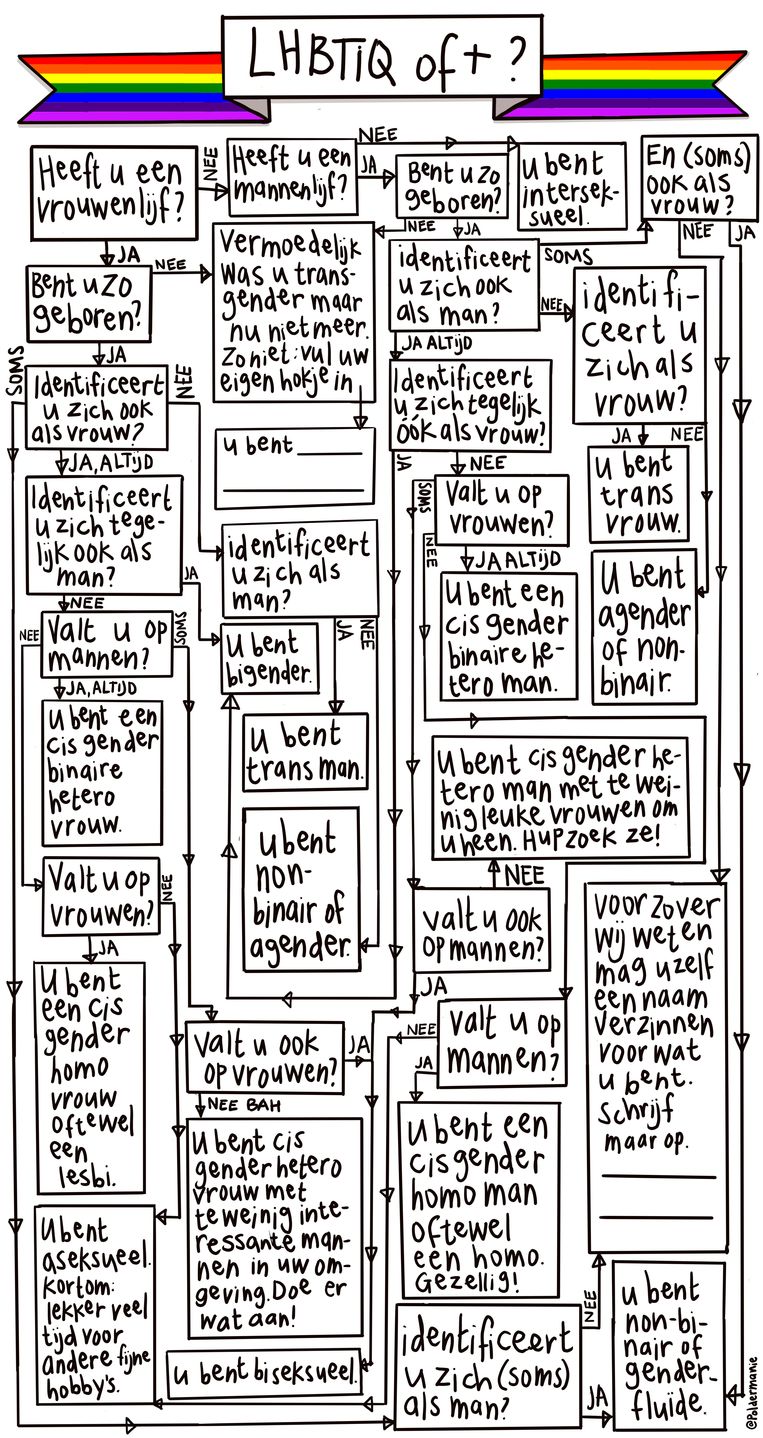 LHBTiQ of + ?
Heeft u een
vrouwenlijf?
NEE
Heeft u een
mannenlijf?
NEE
JA
Bent u zo
geboren?
u bent
intersek-
sueel.
En (soms)
ook als
vrouw?
NEE
JA
JA
Bent u zo
geboren?
NEE
Vermoedelijk
was u trans-
gender maar
nu niet meer.
Zo niet: vul uw
eigen hokje in
u bent
NEE
JA
identificeert
u zich ook
als man?
SOMS
NEE
identifi-
ceert u
zich als
vrouw?
JA
NEE
u bent
trans
vrouw.
U bent
agender
of non-
binair.
JA
SOMS
Identificeert
u zich ook
als vrouw?
NEE
JA, ALTIJD
Identificeert
u zich tege-
lijk ook als
man?
JA
NEE
identificeert
u zich als
man?
JA
NEE
U bent
bigender.
U bent
trans man.
u bent
non-
binair of
agender.
JA ALTIJD
Identificeert
u zich tegelijk
óók als vrouw?
JA
NEE
Valt u op
vrouwen?
SOMS
NEE
JA ALTIJD
U bent een
cis gender
binaire he-
tero man.
Valt u op
mannen?
NEE
SOMS
JA, ALTIJD
U bent een
cis gender
binaire
hetero
vrouw.
Valt u op
vrouwen?
NEE
JA
U bent
een cis
gender
homo
vrouw
oftewel
een
lesbi.
U bent
aseksueel.
Kortom:
lekker veel
tijd voor
andere fijne
hobby's.
Valt u ook
op vrouwen?
JA
NEE BAH
U bent cis
gender hetero
vrouw met
te weinig inte-
ressante man-
nen in uw om-
geving. Doe er
wat aan!
u bent biseksueel.
U bent cis gender he-
tero man met te wei-
nig leuke vrouwen om
u heen. Hup zoek ze!
NEE
valt u ook
op mannen?
JA
Valt u op
mannen?
NEE
JA
U bent een
cis gender
homo man
oftewel
een homo.
Gezellig!
Voor zover
wij weten
mag u zelf
een naam
verzinnen
voor wat
u bent.
Schrijf
maar op.
identificeert
u zich (soms)
als man?
NEE
JA
u bent
non-bi-
nair of
gender-
fluïde.
@Poldermanie